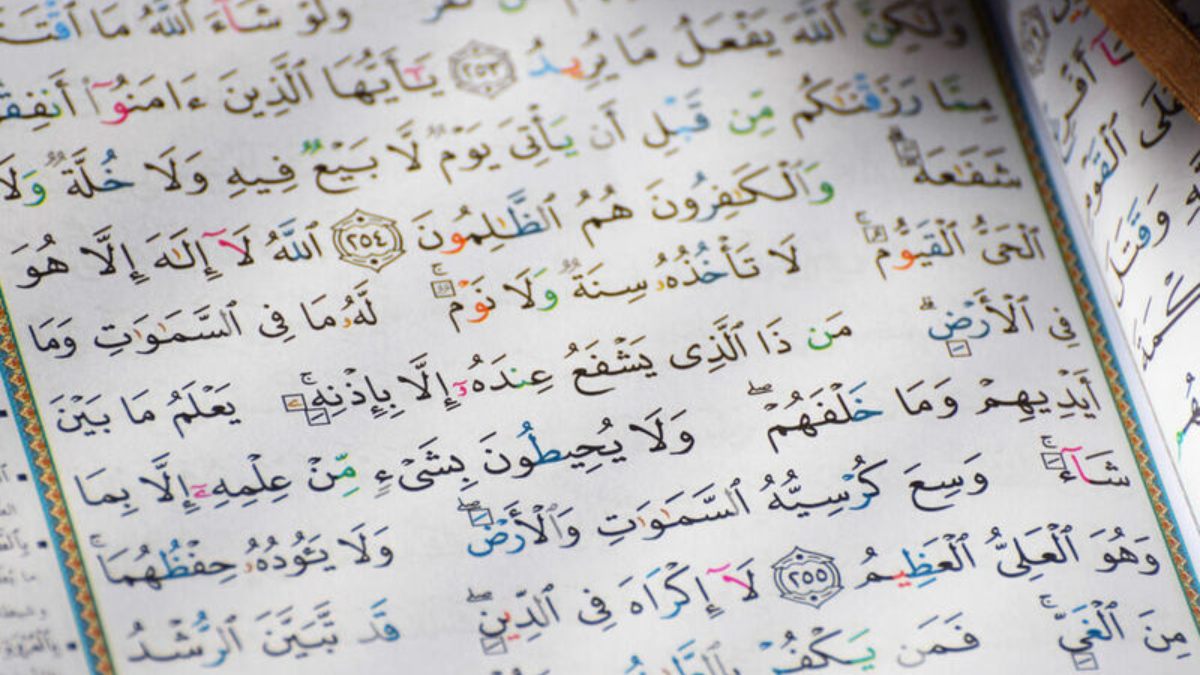 وَلَوْ شَآءَ ٱللَّهُ مَا
وَلَـٰكِنَّ ٱللَّهَ يَفْعَلُ مَا يُرِيدُ ٢٥٣ يَـٰٓأَيُّهَا ٱلَّذِينَ ءَامَنُوٓا۟ أَنفِقُ
مِمَّا رَزَقْنَـٰكُم مِّن قَبْلِ أَن يَأْتِىَ يَوْمٌ لَّا بَيْعٌ فِيهِ وَلَا خُلَّةٌ وَلَا
شَفَـٰعَةٌ وَٱلْكَـٰفِرُونَ هُمُ ٱلظَّـٰلِمُونَ ٢٥٤ ٱللَّهُ لَآ إِلَـٰهَ إِلَّا هُوَ
ٱلْحَىُّ ٱلْقَيُّومُ ۚ لَا تَأْخُذُهُۥ سِنَةٌ وَلَا نَوْمٌ ۚ لَّهُۥ مَا فِى ٱلسَّمَـٰوَٰتِ وَمَا
فِى ٱلْأَرْضِ ۗ مَن ذَا ٱلَّذِى يَشْفَعُ عِندَهُۥٓ إِلَّا بِإِذْنِهِۦ ۚ يَعْلَمُ مَا بَيْنَ
أَيْدِيهِمْ وَمَا خَلْفَهُمْ ۖ وَلَا يُحِيطُونَ بِشَىْءٍ مِّنْ عِلْمِهِۦٓ إِلَّا بِمَا
شَآءَ ۚ وَسِعَ كُرْسِيُّهُ ٱلسَّمَـٰوَٰتِ وَٱلْأَرْضَ ۖ وَلَا يَـُٔودُهُۥ حِفْظُهُمَا ۚ
وَهُوَ ٱلْعَلِىُّ ٱلْعَظِيمُ ٢٥٥ لَآ إِكْرَاهَ فِى ٱلدِّينِ ۖ قَد تَّبَيَّنَ ٱلرُّشْدُ
مِنَ ٱلْغَىِّ ۚ فَمَن يَكْفُرْ